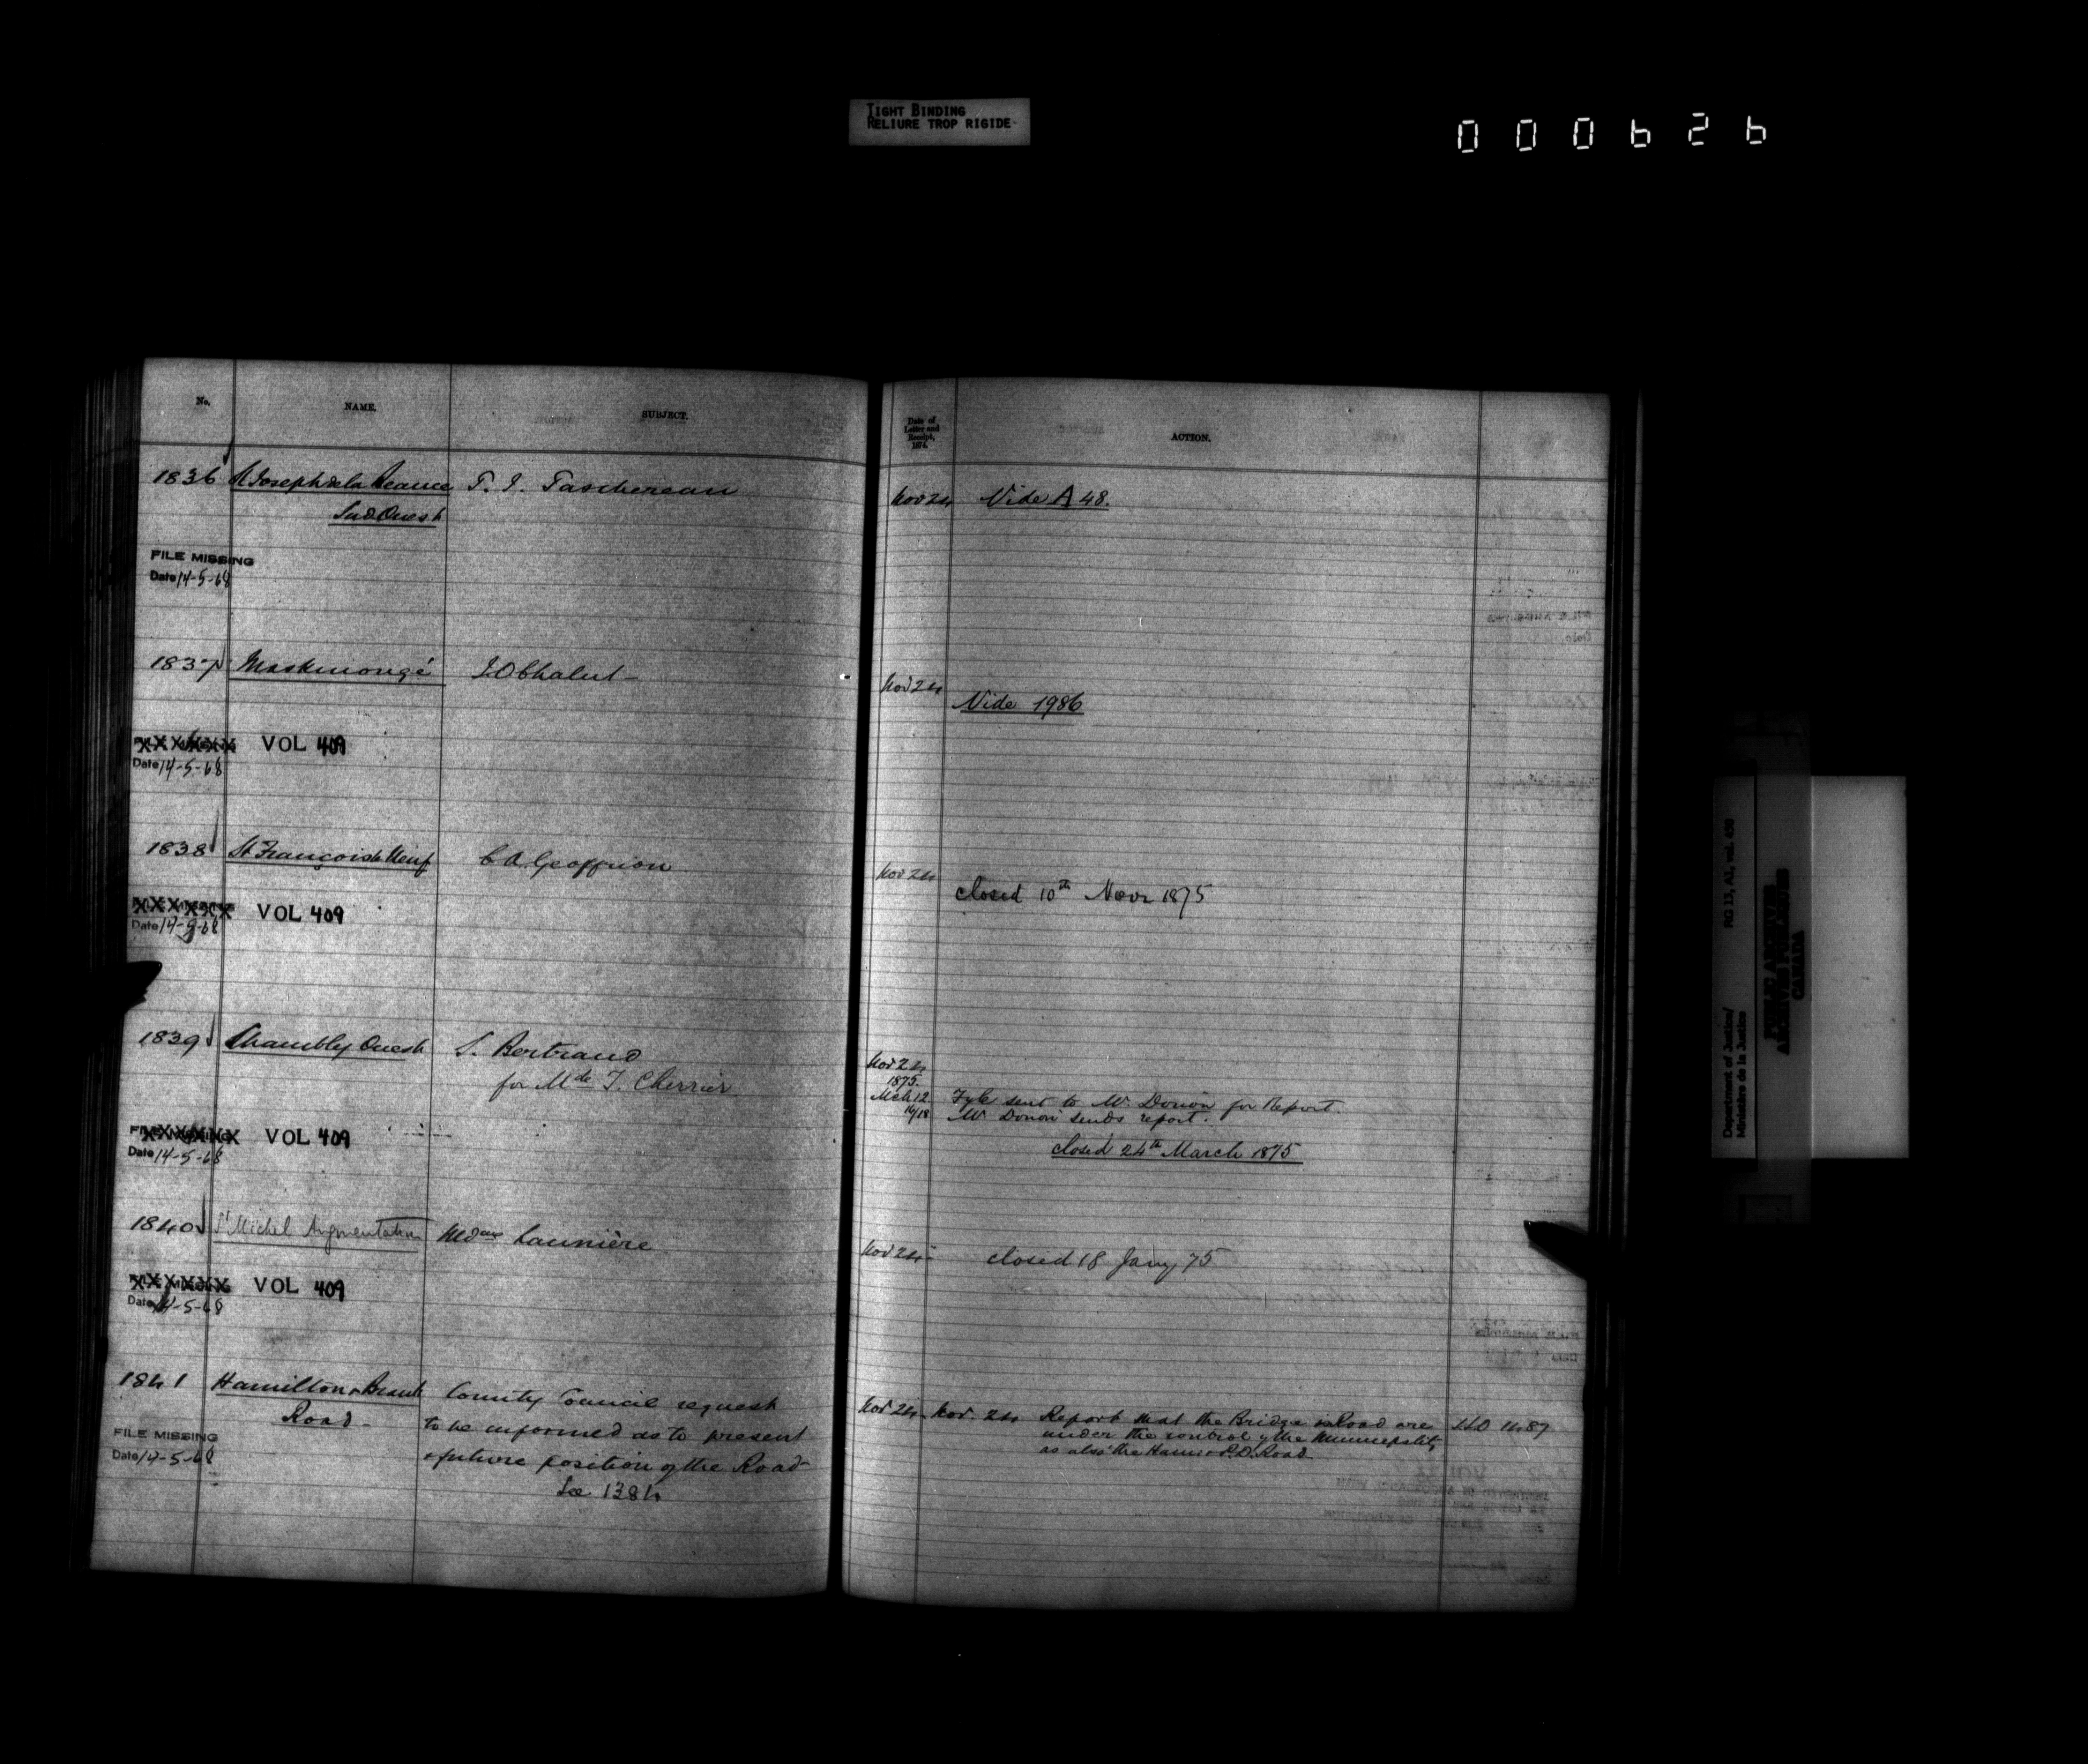 TIGHT BINDING
RELIURE TROP RIGIDE
000626
No. NAME. SUBJECT.
1836 St Joseph de la Beauce T. J. Taschereau
Sud Ouest
FILE MISSING
Date 14-5-68
1837 Maskinongé J O Chalut
VOL 409
Date 14-5-68
1838 St François le Neuf C A Geoffrion
VOL 409
Date 14-5-68
1839 Chambly Ouest S. Bertrand
for Mde T. Cherrier
VOL 409
Date 14-5-68
1840 St Michel Augmentation Launière
VOL 409
Date 14-5-68
1841 Hamilton & Brant County Council request
Road - to be informed as to present
FILE MISSING
Date 14-5-68
& future position of the Road
See 1384
Date of
Letter and
Receipt,
1874.
ACTION.
Nov 24 Vide A 48.
Nov 24
Vide 1986
Nov 24
closed 10th Novr 1875
Nov 24
1875.
Mch 12 Fyle sent to Mr. Dorion for Report.
16/18 Mr Dorion sends report.
closed 24th March 1875
Nov 24 - closed 18 Jany 75
Nov 24 Nov. 24 Report that the Bridge & Road are
under the control of the Municipality
as also the Ham: & P.D. Road
Department of Justice/ RG 13, A2, vol. 450
Ministère de la Justice
PUBLIC ARCHIVES
ARCHIVES PUBLIQUES
CANADA